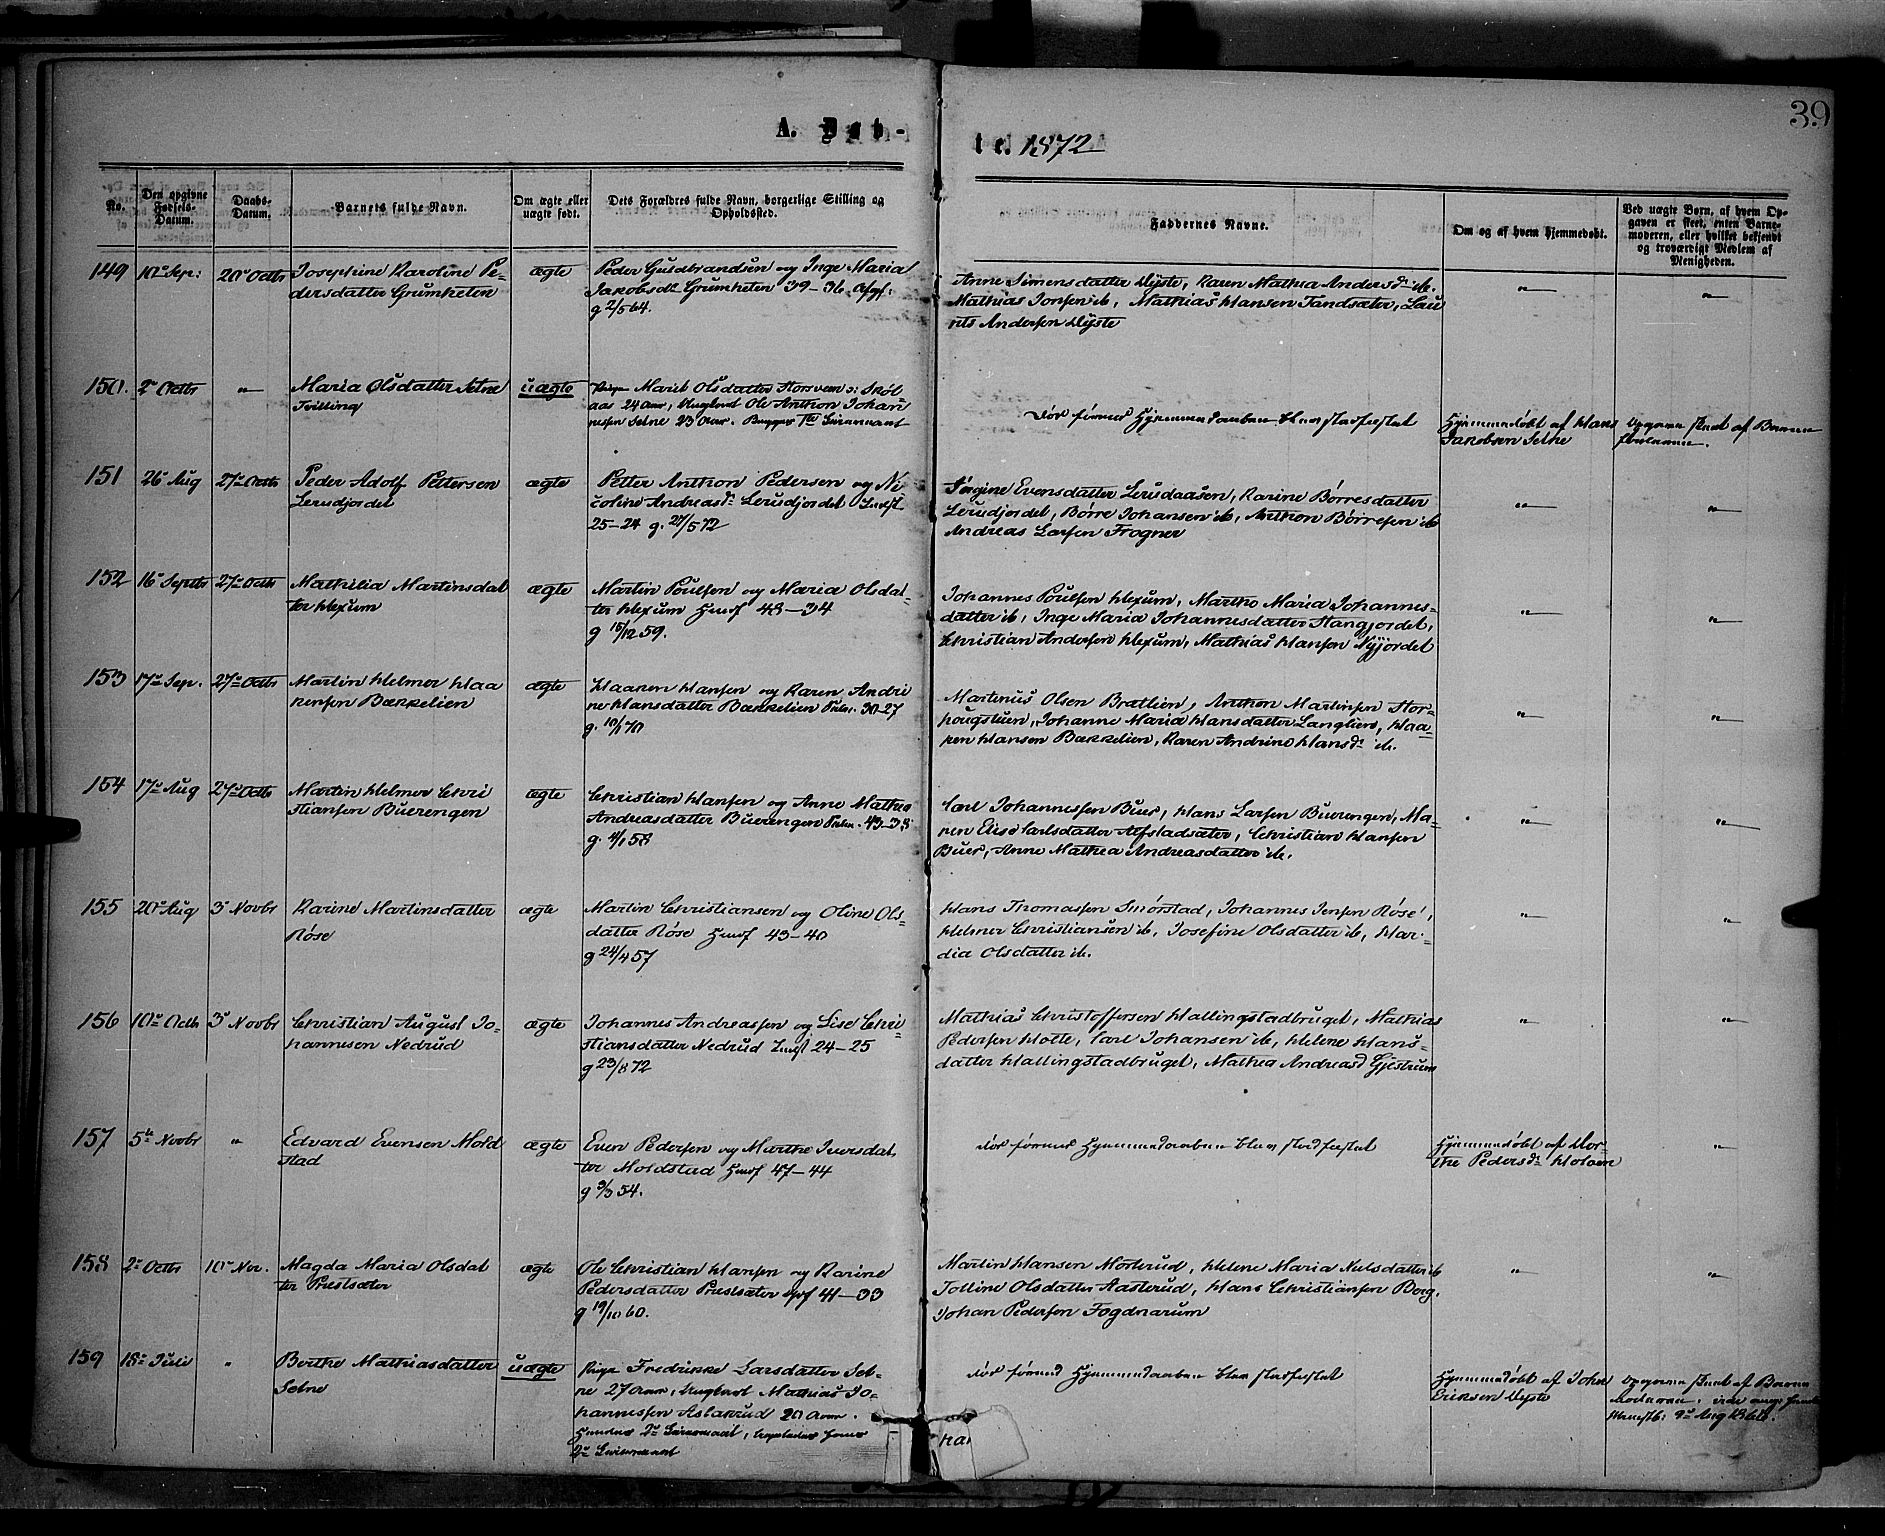 39
A. Døb-
te. 1872
No.
Den opgivne
Fødsels-
Datum.
Daabs-
Datum.
Barnets fulde Navn.
Om ægte eller
uægte født.
Dets Forældres fulde Navn, borgerlige Stilling og
Opholdssted.
Faddernes Navne.
Om og af hvem hjemmedøbt.
Ved uægte Børn, af hvem Op-
gaven er skeet, enten Barne-
moderen, eller hvilket bekjendt
og troværdigt Medlem af
Menigheden.
149 10de Sep: 20de Octbr Josephine Karoline Pe-
dersdatter Grumheten
ægte
Peder Guldbrandsen og Inge Maria
Jakobsdr Grumheten 39-36.
g 2/5 64.
Anne Simensdatter Hyste, Karen Mathea Andersdr ib.
Mathias Jonsen ib, Mathias Hansen Tandsæter, Lau
rits Andersen Hyste
150. 2de Octbr " Maria Olsdatter Setne
Tvilling
uægte
Pige Marit Olsdatter
24 Aar, Ungkarl Ole Anthon Johan-
nesen Setne 23 Aar. Begges 1ste Leiermaal
Hjemmedaaben blev stadfæstet
Hjemmedøbt af Hans
Jakobsen Setne
Opgaven skeet af Barne
151 26de Aug 27de Octbr Peder Adolf Pettersen
Lerudjordet
ægte
Petter Anthon Pedersen og Ni-
coline Andreasdr Lerudjordet Indst
25-24 g. 27/5 72
Jørgine Evensdatter Lerudaasen, Karine Børresdatter
Lerudjordet, Børre Johansen ib, Anthon Børresen ib
Andreas Larsen Frogner
152 16de Septbr 27de Octbr Mathilia Martinsdat
ter Hexum
ægte
Martin Poulsen og Maria Olsdat-
ter Hexum Husm 48-34
g 15/12 59.
Johannes Poulsen Hexum, Marthe Maria Johannes-
datter ib, Inge Maria Johannesdatter Stangjordet,
Christian Andersen Hexum, Mathias Hansen Nyjordet
153 17de Sep. 27de Octbr Martin Helmer Haa
kensen Bækkelien
ægte
Haaken Hansen og Karen Andri
ne Hansdatter Bækkelien 30-27
g. 10/1 70
Martinus Olsen Bratlien, Anthon Martinsen Stor-
haugslien, Johanne Maria Hansdatter Langlien, Haa-
ken Hansen Bækkelien, Karen Andrine Hansdr ib.
154 17de Aug 27de Octbr Martin Helmer Chri
stiansen Buerengen
ægte
Christian Hansen og Anne Mathea
Andreasdatter Buerengen 43-38
g. 4/1 58
Carl Johannessen Buer, Hans Larsen Buerengen, Ma-
ren Elise Carlsdatter Alfstadsæter, Christian Hansen
Buer, Anne Mathea Andreasdatter ib.
155 20de Aug 3de Novbr Karine Martinsdatter
Røse
ægte
Martin Christiansen og Oline Ols-
datter Røse Husm 43-40
g 24/4 57
Hans Thomassen Smørstad, Johannes Jensen Røse,
Helmer Christiansen ib, Josefine Olsdatter ib, Mar-
dia Olsdatter ib.
156 10de Octb 3de Novbr Christian August Jo-
hannesen Nedrud
ægte
Johannes Andreassen og Lise Chri-
stiansdatter Nedrud Indst 24-25
g 23/8 72
Mathias Christoffersen Hallingstadbruget, Mathias
Pedersen Hotte, Carl Johansen ib, Helene Hans-
datter Hallingstadbruget, Mathea Andreasd Gjestrum
157 5te Novbr " Edvard Evensen Mold
stad
ægte
Even Pedersen og Marthe Iversdat
ter Moldstad Husm 47-44
g 3/3 54.
Hjemmedaaben blev stadfæstet
Hjemmedøbt af Dor-
the Pedersdr Holmen
158 2de Octbr 10de Nov. Magda Maria Olsdat
ter Prestsæter
ægte
Ole Christian Hansen og Karine
Pedersdatter Prestsæter 41-33
g 19/10 60.
Martin Hansen Morterud, Helene Maria Nilsdatter ib
Tolline Olsdatter Aasterud, Hans Christiansen Borg,
Johan Pedersen Fogdnarum
159 18de Juli " Berthe Mathiasdatter
Setne
uægte
Pige Fredrikke Larsdatter Set-
ne 27 Aar, Ungkarl Mathias Jo-
hannessen Aslakrud 20 Aar.
Hendes 2de Leiermaal,
2de Leiermaal
Hjemmedaaben blev stadfæstet
Hjemmedøbt af John
Eriksen Hyste
Opgaven skeet af Barne
moderen.
9de Aug